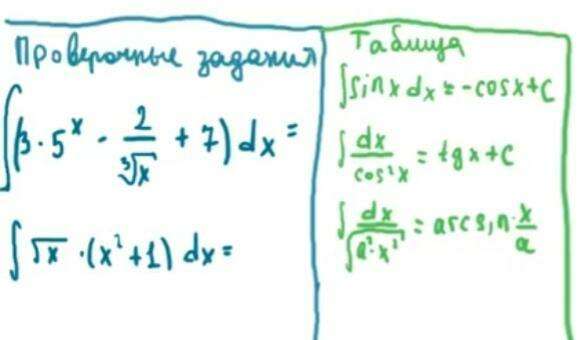 Проверочные задания
∫(3·5ˣ - 2/∛x + 7)dx =
∫√x·(x²+1)dx =
Таблица
∫sinx dx = -cosx+C
∫dx/cos²x = tgx+C
∫dx/√(a²-x²) = arcsin x/a